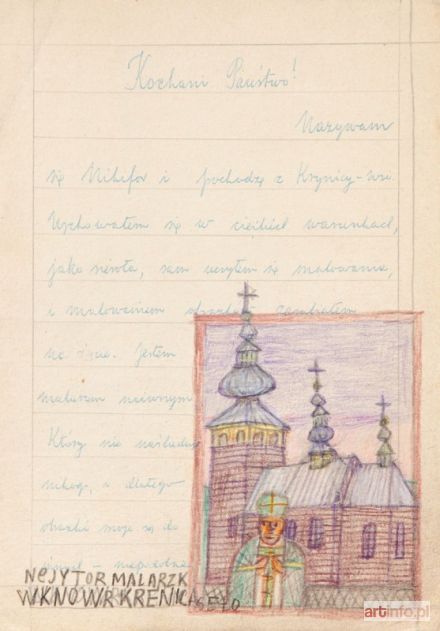 Kochani Państwo!
Nazywam
się Nikifor i pochodzę z Krynicy-wsi
Wychowałem się w ciężkich warunkach,
jako sierota, sam uczyłem się malowania,
i malowaniem zarabiałem
na życie. Jestem
malarzem naiwnym
Który nie naśladuje
nikogo, a dlatego
obrazki moje są do
NeJYTOR MALARZK
artinfo.pl